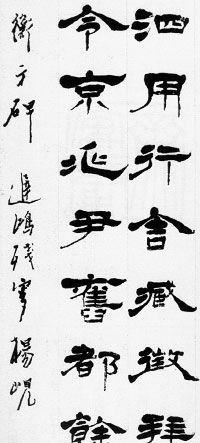 泗用行舍臧徵拜
令京兆尹舊都餘
衡方碑 遲鴻殘叟楊峴